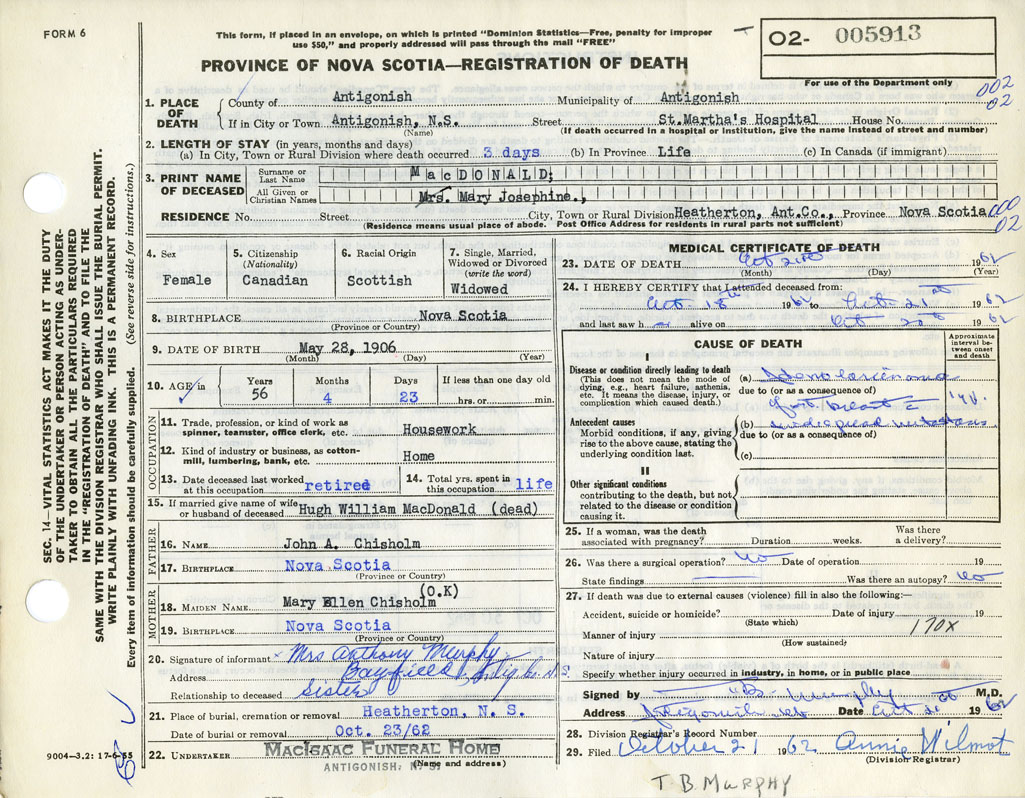 FORM 6
This form, if placed in an envelope, on which is printed "Dominion Statistics—Free, penalty for improper
use $50," and properly addressed will pass through the mail "FREE"
O2- 005913
For use of the Department only
PROVINCE OF NOVA SCOTIA—REGISTRATION OF DEATH
002
02
1. PLACE OF DEATH { County of Antigonish Municipality of Antigonish
If in City or Town Antigonish, N.S. Street St.Martha's Hospital House No.
(Name) (If death occurred in a hospital or institution, give the name instead of street and number)
2. LENGTH OF STAY (in years, months and days)
(a) In City, Town or Rural Division where death occurred 3 days (b) In Province Life (c) In Canada (if immigrant)
3. PRINT NAME OF DECEASED Surname or Last Name MacDONALD;
All Given or Christian Names Mrs. Mary Josephine.,
RESIDENCE No. Street City, Town or Rural Division Heatherton, Ant.Co., Province Nova Scotia 000
02
(Residence means usual place of abode. Post Office Address for residents in rural parts not sufficient)
4. Sex Female
5. Citizenship (Nationality) Canadian
6. Racial Origin Scottish
7. Single, Married, Widowed or Divorced (write the word) Widowed
8. BIRTHPLACE Nova Scotia
(Province or Country)
9. DATE OF BIRTH May 28, 1906
(Month) (Day) (Year)
10. AGE in Years 56 Months 4 Days 23 If less than one day old hrs. or min.
OCCUPATION
11. Trade, profession, or kind of work as spinner, teamster, office clerk, etc. Housework
12. Kind of industry or business, as cotton-mill, lumbering, bank, etc. Home
13. Date deceased last worked at this occupation retired
14. Total yrs. spent in this occupation life
15. If married give name of wife or husband of deceased Hugh William MacDonald (dead)
FATHER
16. NAME John A. Chisholm
17. BIRTHPLACE Nova Scotia
(Province or Country)
MOTHER
18. MAIDEN NAME Mary Ellen Chisholm (O.K)
19. BIRTHPLACE Nova Scotia
(Province or Country)
20. Signature of informant Mrs Anthony Murphy
Address Bayfield Antig Co. N.S.
Relationship to deceased Sister
21. Place of burial, cremation or removal Heatherton, N. S.
Date of burial or removal Oct. 23/62
22. UNDERTAKER MACISAAC FUNERAL HOME
ANTIGONISH, N. S. (Name and address)
9004-3.2: 17-6-55
MEDICAL CERTIFICATE OF DEATH
23. DATE OF DEATH Oct 21st 1962
(Month) (Day) (Year)
24. I HEREBY CERTIFY that I attended deceased from:
Oct 18th 1962 to Oct 21st 1962
and last saw h alive on Oct 20th 1962
CAUSE OF DEATH
Approximate interval between onset and death
I
Disease or condition directly leading to death
(This does not mean the mode of dying, e.g., heart failure, asthenia, etc. It means the disease, injury, or complication which caused death.)
(a) Adenocarcinoma
due to (or as a consequence of)
Antecedent causes
Morbid conditions, if any, giving rise to the above cause, stating the underlying condition last.
breast
(b) widespread metastasis
due to (or as a consequence of)
(c)
II
Other significant conditions
contributing to the death, but not related to the disease or condition causing it.
25. If a woman, was the death associated with pregnancy? Duration weeks. Was there a delivery?
26. Was there a surgical operation? No Date of operation 19
State findings Was there an autopsy? No
27. If death was due to external causes (violence) fill in also the following:—
Accident, suicide or homicide? Date of injury 19
(State which)
170X
Manner of injury
(How sustained)
Nature of injury
Specify whether injury occurred in industry, in home, or in public place
Signed by T B Murphy M.D.
Address Antigonish Date Oct 21st 1962
28. Division Registrar's Record Number
29. Filed October 21 1962 Annie Wilmot
(Division Registrar)
T B MURPHY
SEC. 14—VITAL STATISTICS ACT MAKES IT THE DUTY
OF THE UNDERTAKER OR PERSON ACTING AS UNDER-
TAKER TO OBTAIN ALL THE PARTICULARS REQUIRED
IN THE "REGISTRATION OF DEATH" AND TO FILE THE
SAME WITH THE DIVISION REGISTRAR WHO SHALL ISSUE THE BURIAL PERMIT.
WRITE PLAINLY WITH UNFADING INK. THIS IS A PERMANENT RECORD.
Every item of information should be carefully supplied. (See reverse side for instructions.)